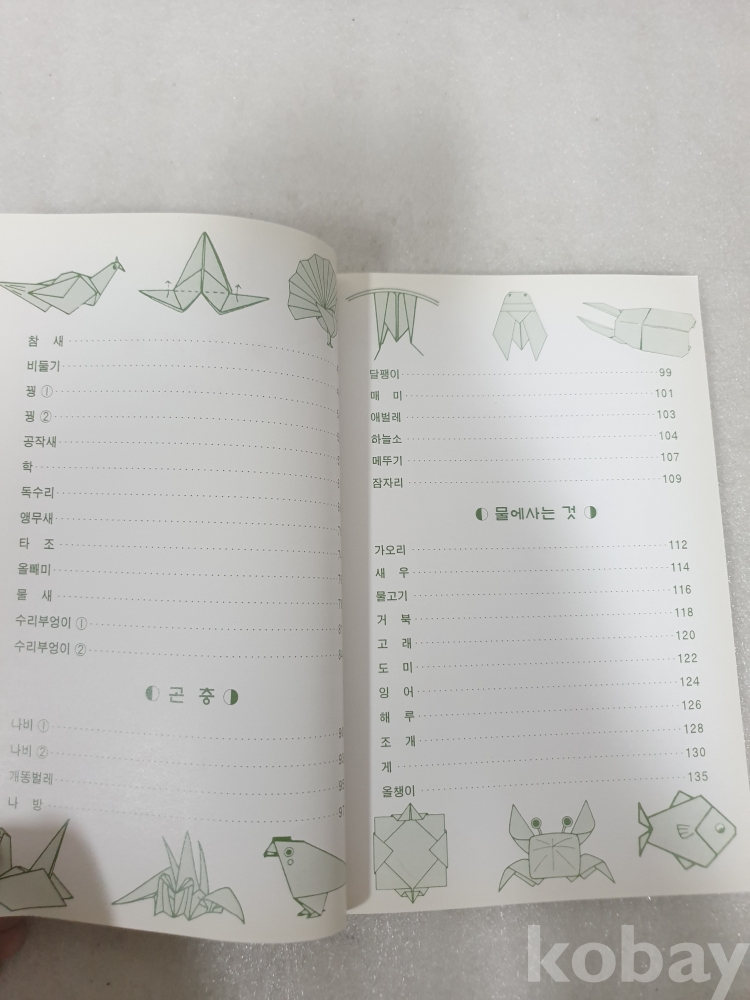 참 새
비둘기
꿩 ①
꿩 ②
공작새
학
독수리
앵무새
타 조
올빼미
물 새
수리부엉이 ①
수리부엉이 ②
곤 충
나비 ①
나비 ②
개똥벌레
나 방
달팽이 99
매 미 101
애벌레 103
하늘소 104
메뚜기 107
잠자리 109
물에사는 것
가오리 112
새 우 114
물고기 116
거 북 118
고 래 120
도 미 122
잉 어 124
해 루 126
조 개 128
게 130
올챙이 135
kobay